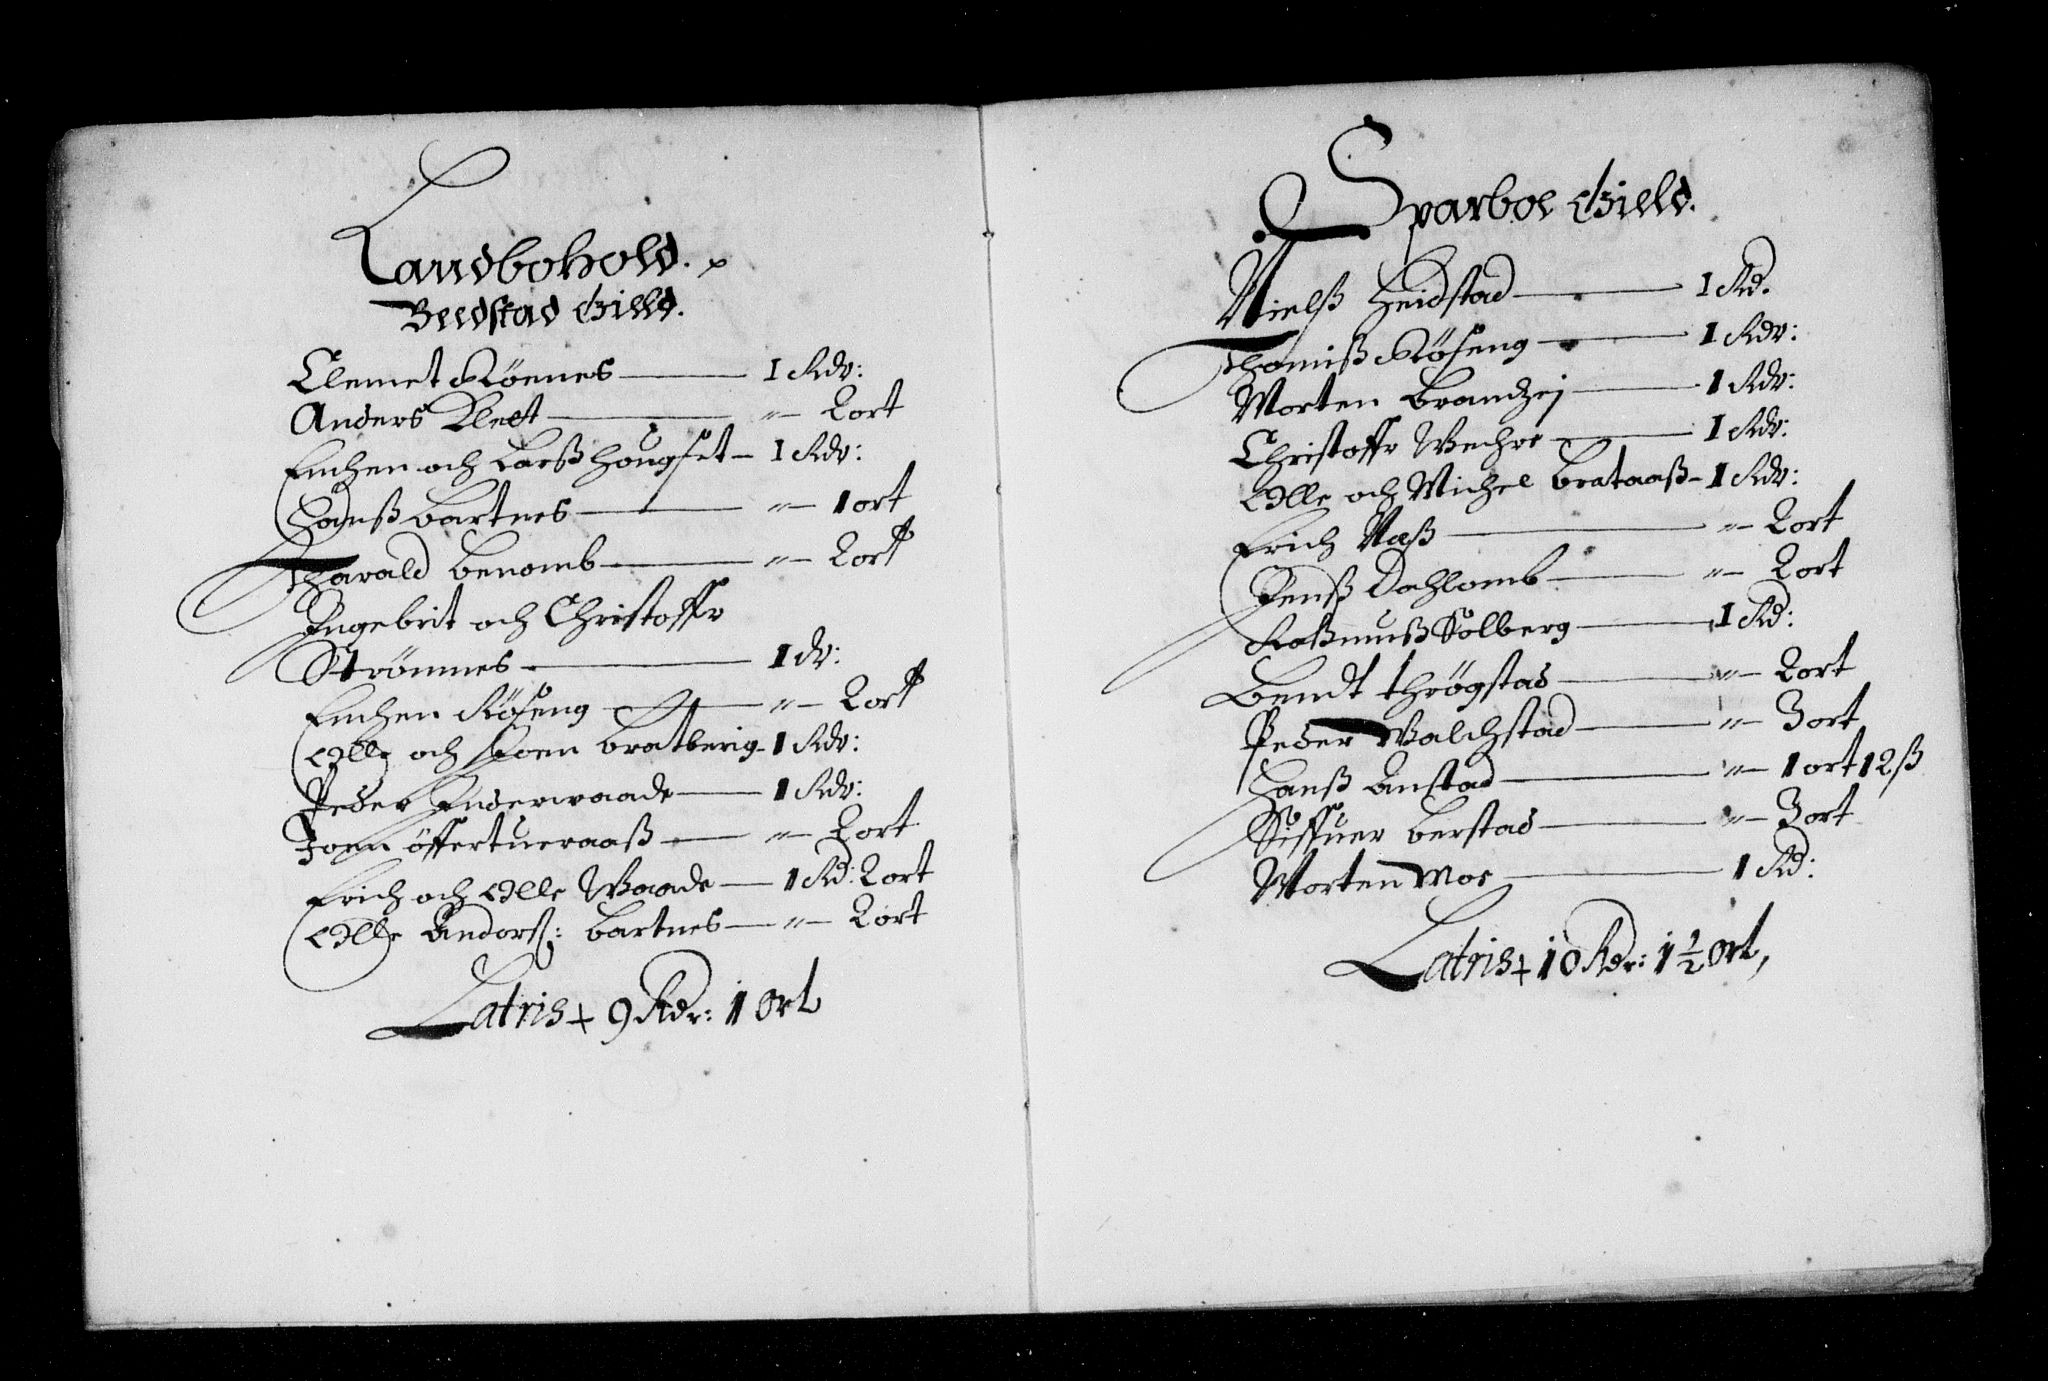 Landbohold.
Beedstad Gield.
Clemet Röenes — 1 Rdr:
Anders Kleet — " — 2 ort
Enchen och Larß hougset — 1 Rdr:
Hanß bartnes — " — 1 ort
Harald benomb — " — 2 ort
Ingebrit och Christoffr
Strömnes — 1 dr:
Enchen Röseng — " — 2 ort
Olle och Joen bratberig — 1 Rdr:
Peder Enderwaade — 1 Rdr:
Joen öffertueraaß — " — 2 ort
Erich och Olle Waade — 1 Rd: 2 ort
Olle Anders: bartnes — " — 2 ort
Latris + 9 Rdr: 1 Ort
Sparboe Gield.
Nielß heidstad — 1 Rd.
Thomiß Röseng — 1 Rdr:
Morten brandzej — 1 Rdr:
Christoffr Wechre — 1 Rdr:
Olle och Michel brataaß — 1 Rdr:
Erich Næß — " — 2 ort
Jenß Dahlomb — " — 2 ort
Raßmuß Solberg — 1 Rd:
Bendt thrögstad — " — 2 ort
Peder Walchstad — " — 3 ort
Hanß Anstad — " — 1 ort 12 ß
Siffuer berstad — " — 3 ort
Morten Moe — 1 Rd:
Latris + 10 Rdr: 1 1/2 Ort,